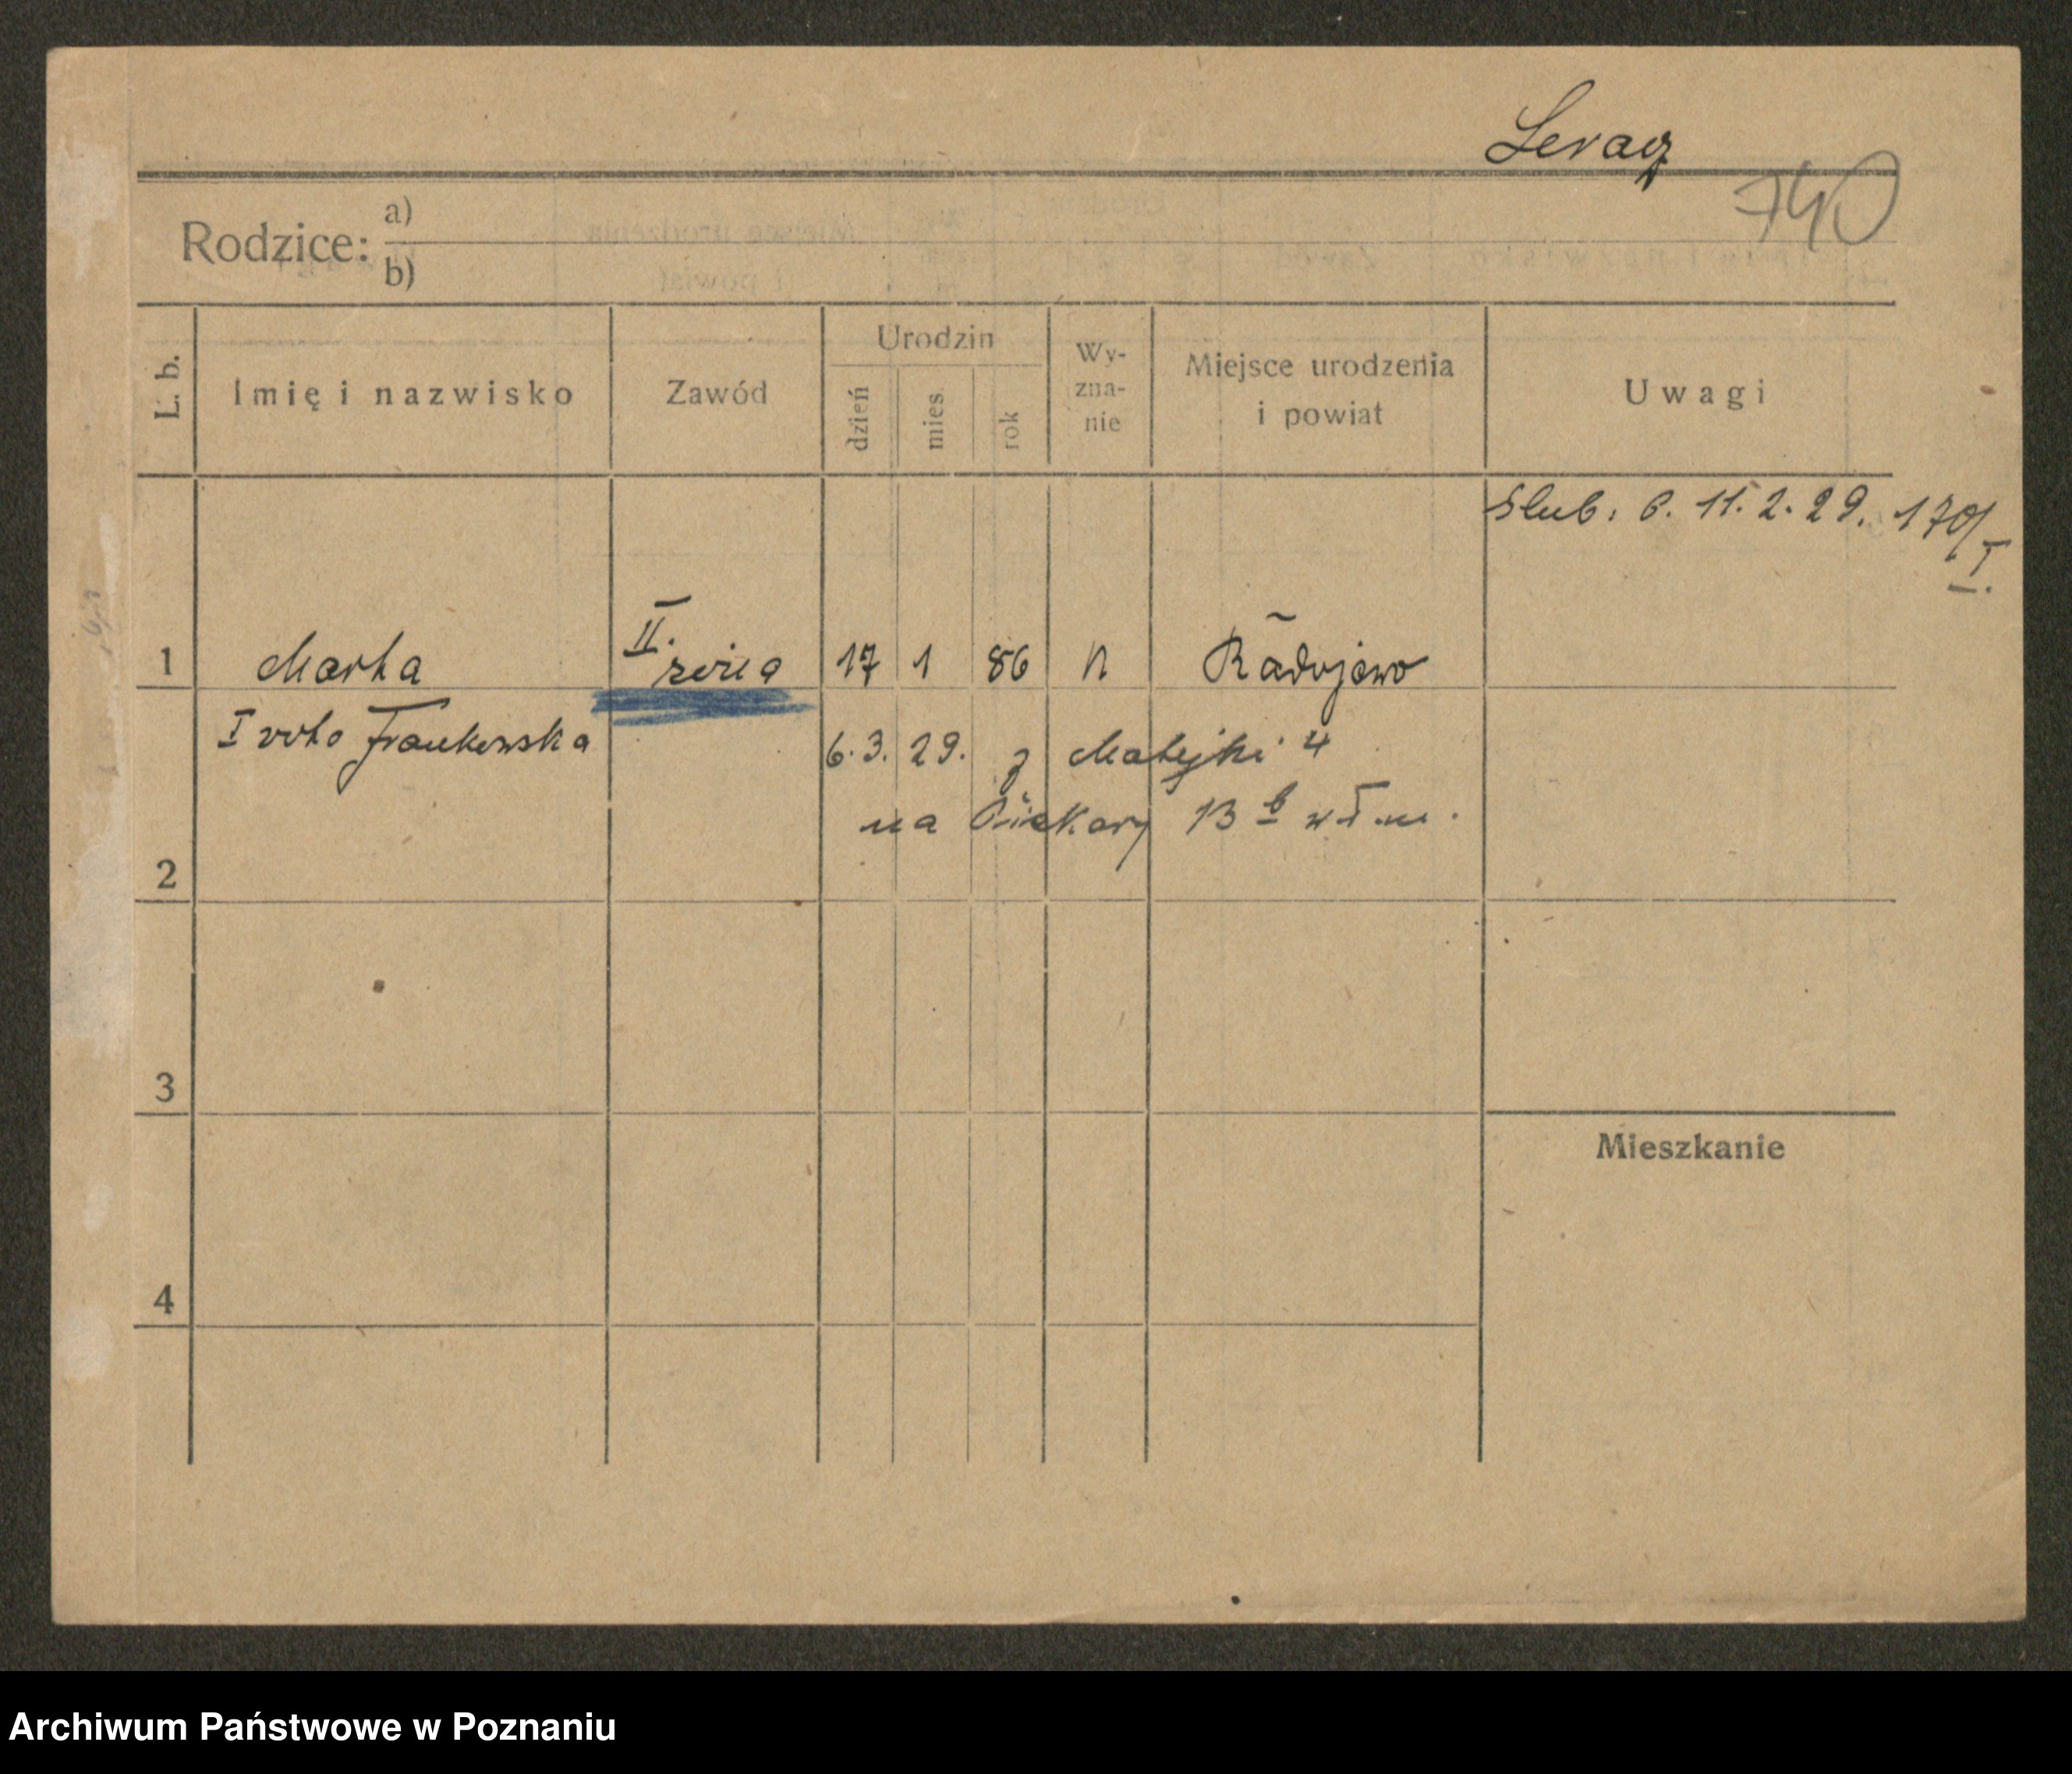 Leracz
740
Rodzice: a)
b)
L. b.
Imię i nazwisko
Zawód
Urodzin
dzień
mies.
rok
Wy-
zna-
nie
Miejsce urodzenia
i powiat
Uwagi
Slub: P. 11. 2. 29. 170/I.
1 Marta II. żona 17 1 86 n Radojewo
I voto Frankowska
6. 3. 29. z Matejki 4
na Piekary 13 b wł. m.
2
3
Mieszkanie
4
Archiwum Państwowe w Poznaniu